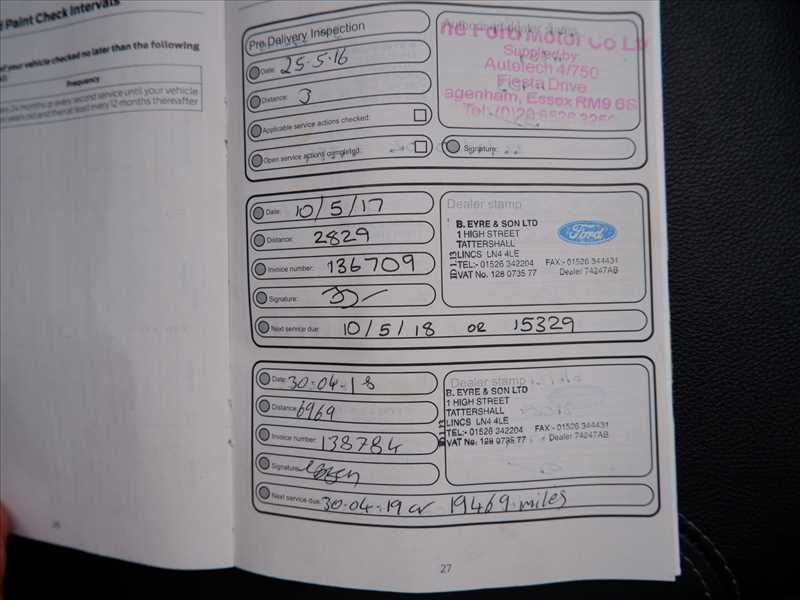 Paint Check Intervals
of your vehicle checked no later than the following
Frequency
24 months or every second service until your vehicle
years old and then at least every 12 months thereafter
Pre Delivery Inspection
Date: 25-5-16
Distance: 3
Applicable service actions checked:
Open service actions completed:
Ford Motor Co L
Supplied by
Autotech 4/750
Fiesta Drive
agenham, Essex RM9 6S
Tel: (0)20 8526
Signature:
Date: 10/5/17
Distance: 2829
Invoice number: 136709
Signature:
Next service due: 10/5/18 OR 15329
Dealer stamp
B. EYRE & SON LTD
1 HIGH STREET
TATTERSHALL
LINCS LN4 4LE
TEL:- 01526 342204 FAX:- 01526 344431
VAT No. 128 0735 77 Dealer 74247AB
Ford
Date: 30-04-18
Distance: 6969
Invoice number: 138784
Signature:
Next service due: 30-04-19 or 19469 miles
Dealer stamp
B. EYRE & SON LTD
1 HIGH STREET
TATTERSHALL
LINCS LN4 4LE
TEL:- 01526 342204 FAX:- 01526 344431
VAT No. 128 0735 77 Dealer 74247AB
27